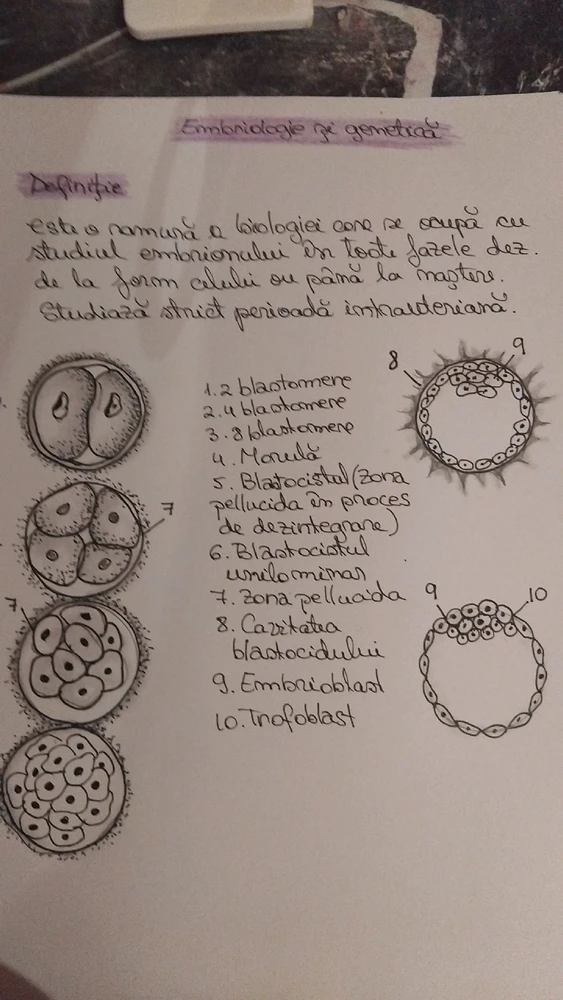 Embriologie și genetică
Definiție
este o ramură a biologiei care se ocupă cu
studiul embrionului în toate fazele dez.
de la form celului ou până la naștere.
Studiază strict perioadă intrauteriană.
1. 2 blastomere
2. 4 blastomere
3. 8 blastomere
4. Morulă
5. Blastocistul (zona
pellucida în proces
de dezintegrare)
6. Blastocistul
unilaminar
7. Zona pellucida
8. Cavitatea
blastocidului
9. Embrioblast
10. Trofoblast
8
9
7
7
9
10